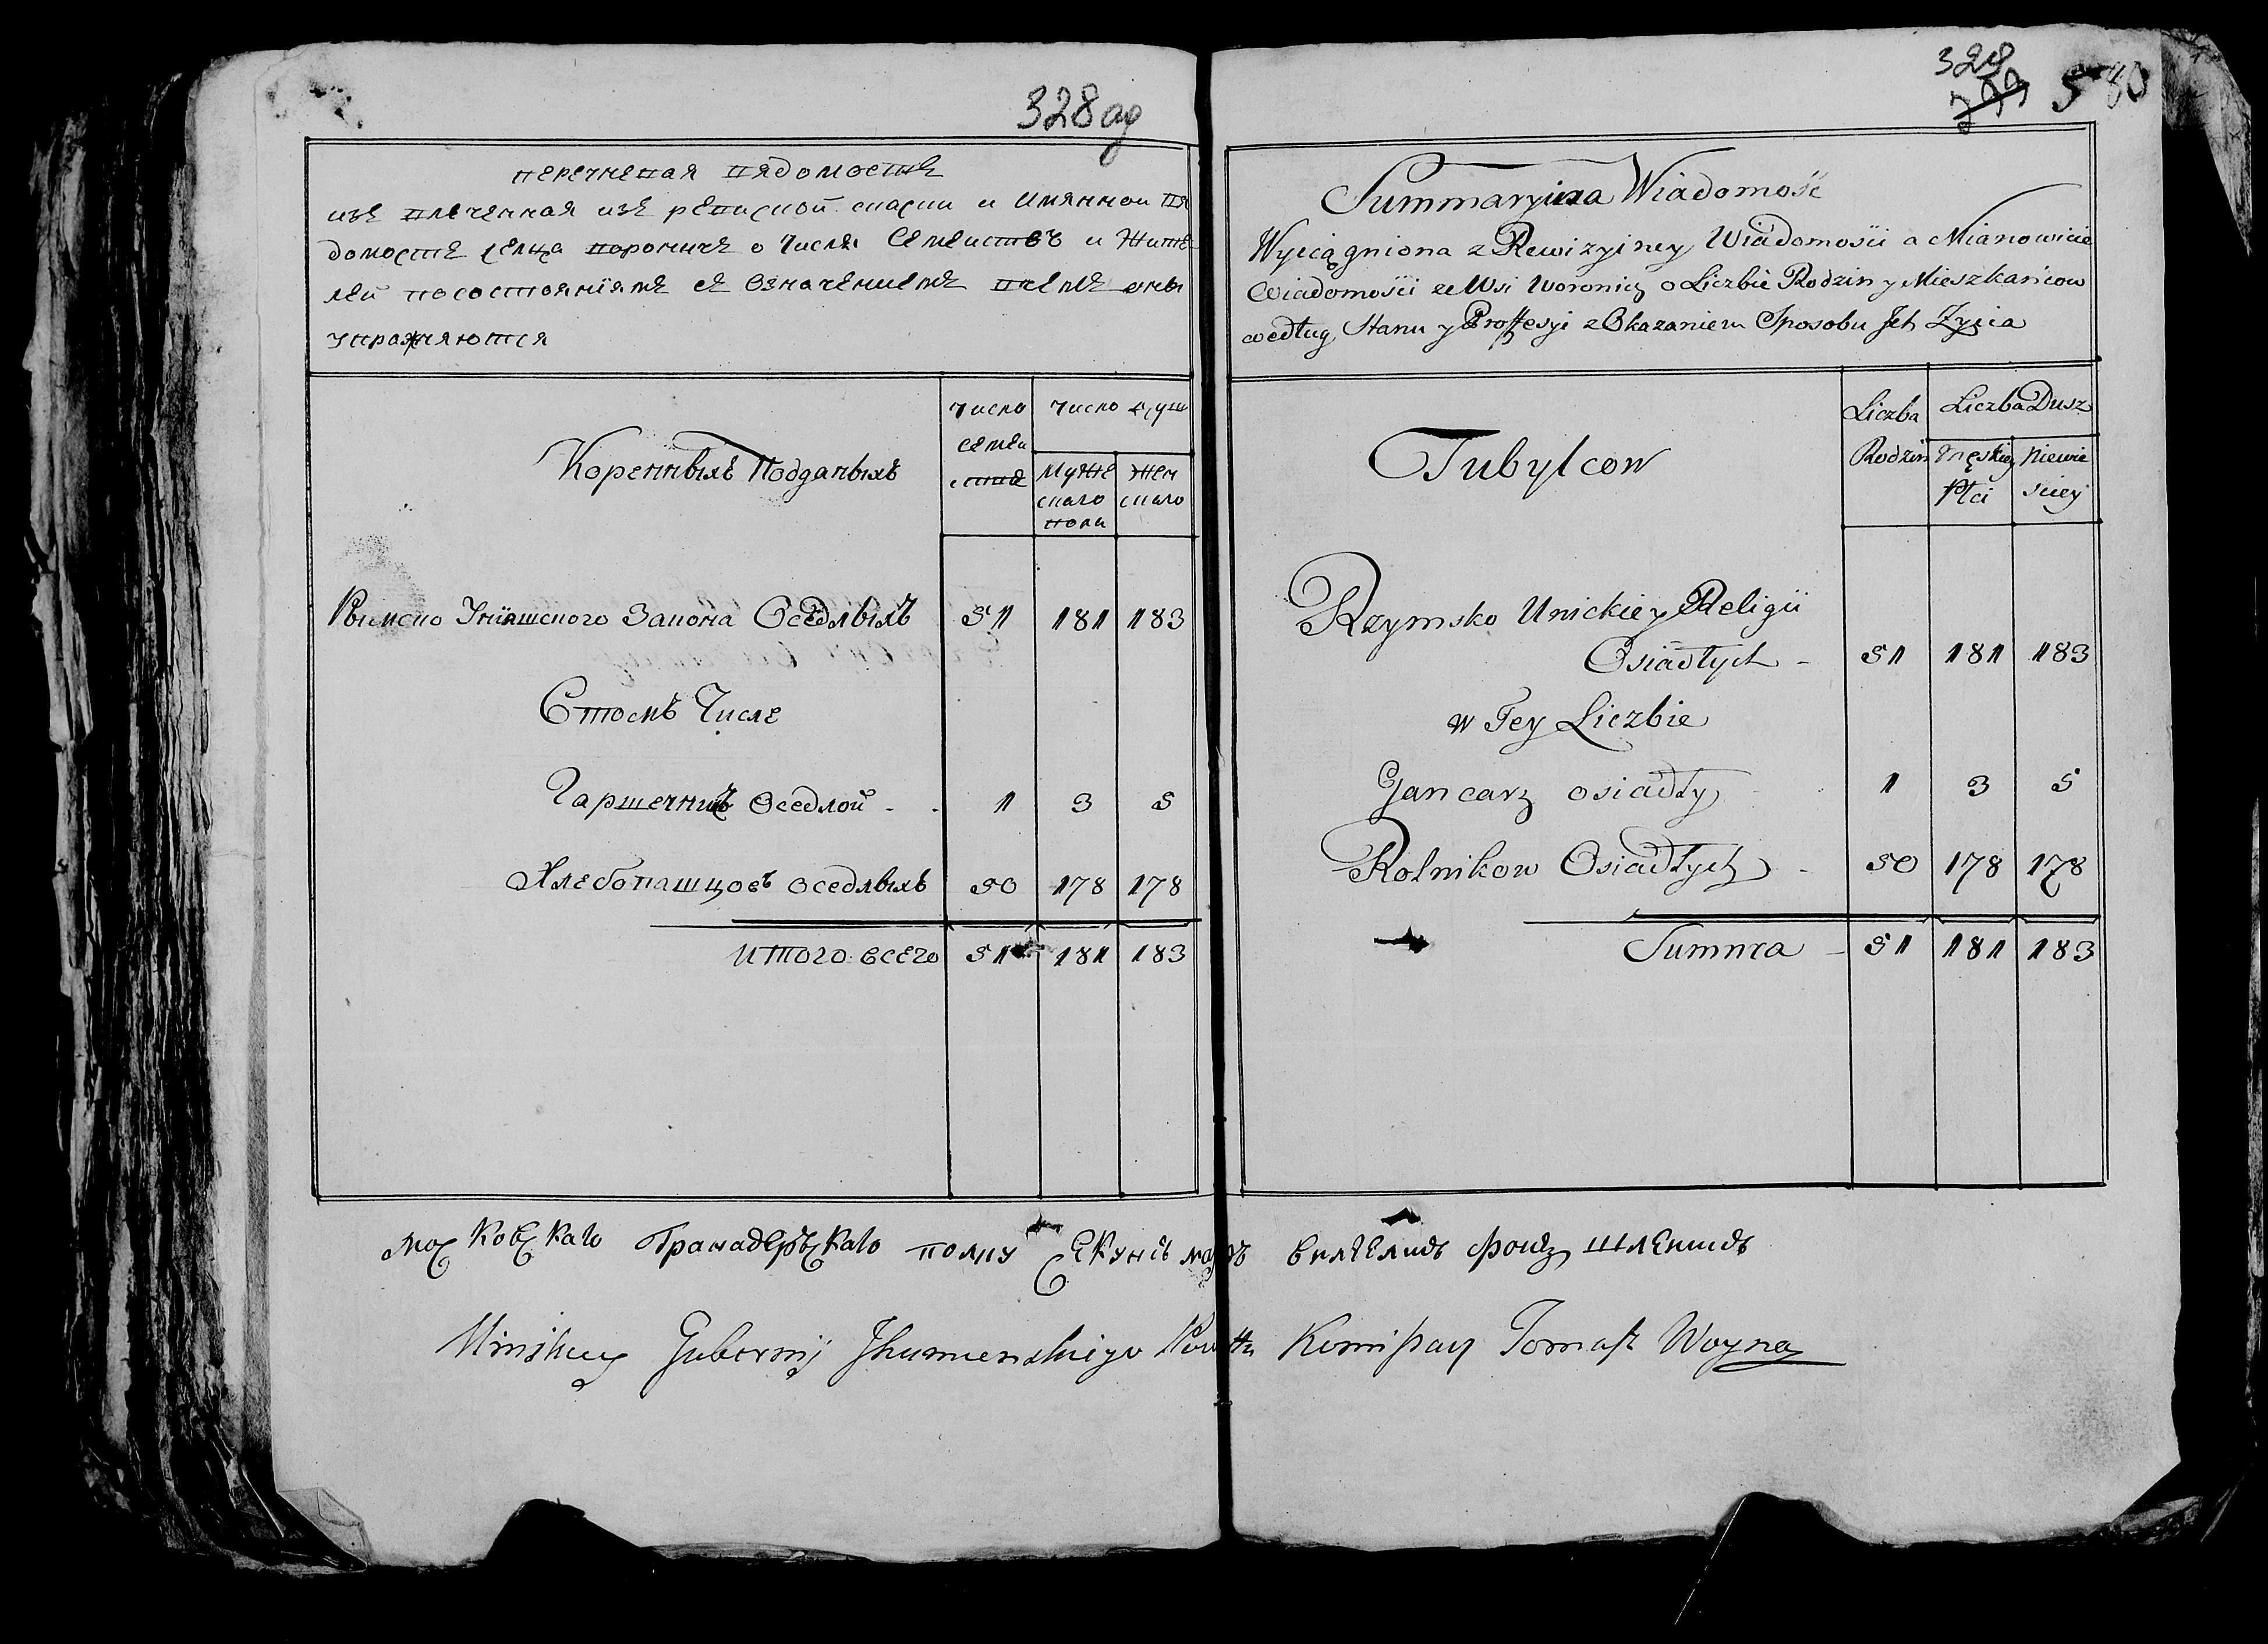 328 аg
перечневая вядомость
изъ влеченная изъ ревизкой скаски и Имянной вя
домосте селца вороничъ о числя Семействъ и жите
лей посостояніямъ съ Означениемъ вчемъ оны
упражняются
Коренныхъ Подданыхъ
число семействъ
число душ
мужескаго пола
женскаго
Римско Униятского Закона Оседлыхъ 51 181 183
Стомъ Числе
Гаршечникъ Оседлой - - 1 3 5
Хлебопашцовъ оседлыхъ 50 178 178
итого всего 51 181 183
328
580
Summaryina Wiadomość
Wyciągniona z Rewizyiney Wiadomości a Mianowicie
Wiadomości ze Wsi Woronicz o Liczbie Rodzin y Mieszkańcow
według Stanu y Proffesyi z Okazaniem Sposobu Jch Zycia
Tubylcow
Liczba Rodzin
Liczba Dusz
Męskiey Płci
Niewieściey
Rzymsko Unickiey Religii
Osiadłych - 51 181 183
w Tey Liczbie
Gancarz osiadły 1 3 5
Rolnikow Osiadłych - 50 178 178
Summa - 51 181 183
Московскаго Гранадерскаго полку Секунсъ маіоръ вилгелмъ фонъ
Minskiey Gubernij Jhumenskiego Powttu Komissarz Tomasz Woyna